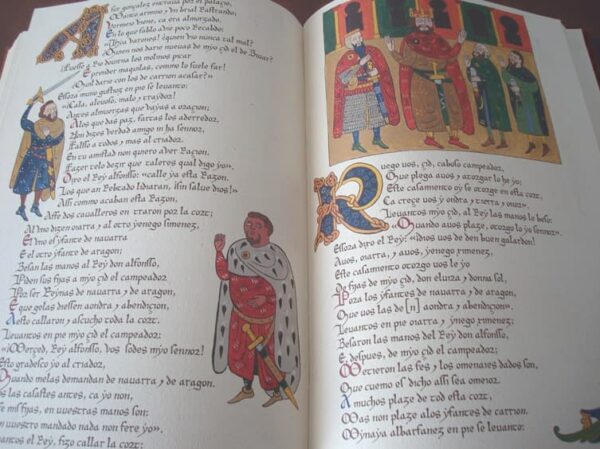 Asur gonçalez entraua por el palaçio,
Manto armino y un brial Rastrando,
Vermeio viene, ca era almorzado.
En lo que fablo avie poco Recabdo:
«¡Hya varones! ¿quien vio nunca tal mal?
¿Quien nos darie nueuas de myo çid el de Biuar?
¡Fuesse a Rio douirna los molinos picar
E prender maquilas, commo lo suele far!
¿Quil darie con los de carrion acasar?»
Essora muno gustioz en pie se leuanto:
«¡Cala, aleuoso, malo y traydor!
Antes almuerzas que vayas a oraçion;
A los que das paz, fartas los aderredor.
Non dizes verdad amigo ni ha sennor,
Falsso a todos y mas al criador.
En tu amistad non quiero aver Raçion.
Fazer telo dezir que tal eres qual digo yo».
Dixo el Rey alfonsso: «calle ya esta Razon.
Los que an Rebtado lidiaran, ¡sin salue dios!»
Assi commo acaban esta Razon,
Affe dos caualleros en traron por la cort;
Al vno dizen oiarra y al otro yenego simenez,
El vno es yfante de nauarra
E el otro yfante de aragon;
Besan las manos al Rey don alfonsso,
Piden sus fijas a myo çid el campeador
Por ser Reynas de nauarra y de aragon,
E que gelas diessen aondra y abendiçion,
A esto callaron y ascucho toda la cort.
Leuantos en pie myo çid el campeador;
«¡Merçed, Rey alfonsso, vos sodes myo sennor!
Esto gradesco yo al criador,
Quando melas demandan de nauarra y de aragon.
Vos las casastes antes, ca yo non,
Afe mis fijas, en vuestras manos son:
Sin vuestro mandado nada non fere yo».
Leuantos el Rey, fizo callar la cort:
Ruego uos, çid, caboso campeador,
Que plega auos, y otorgar lo he yo;
Este casamiento oy se otorge en esta cort,
Ca creçe uos y ondra y tierra y onor».
Leuantos myo çid, al Rey las manos le beso:
«Quando auos plaze, otorgo lo yo sennor».
Essora dixo el Rey: «¡dios uos de den buen galardon!
Auos, oiarra, y auos, yenego ximenez,
Este casamiento otorgo uos le yo
De fijas de myo çid, don eluira y donna sol,
Pora los yfantes de nauarra y de aragon,
Que uos las de [n] aondra y abendiçion».
Leuantos en pie oiarra, y ynego ximenez;
Besaron las manos del Rey don alfonsso,
E, despues, de myo çid el campeador;
Metieron las fes, y los omenaies dados son,
Que cuemo es dicho assi sea omeior.
A muchos plaze de tod esta cort,
Mas non plaze alos yfantes de carrion.
Mynaya albarfanez en pie se leuanto: